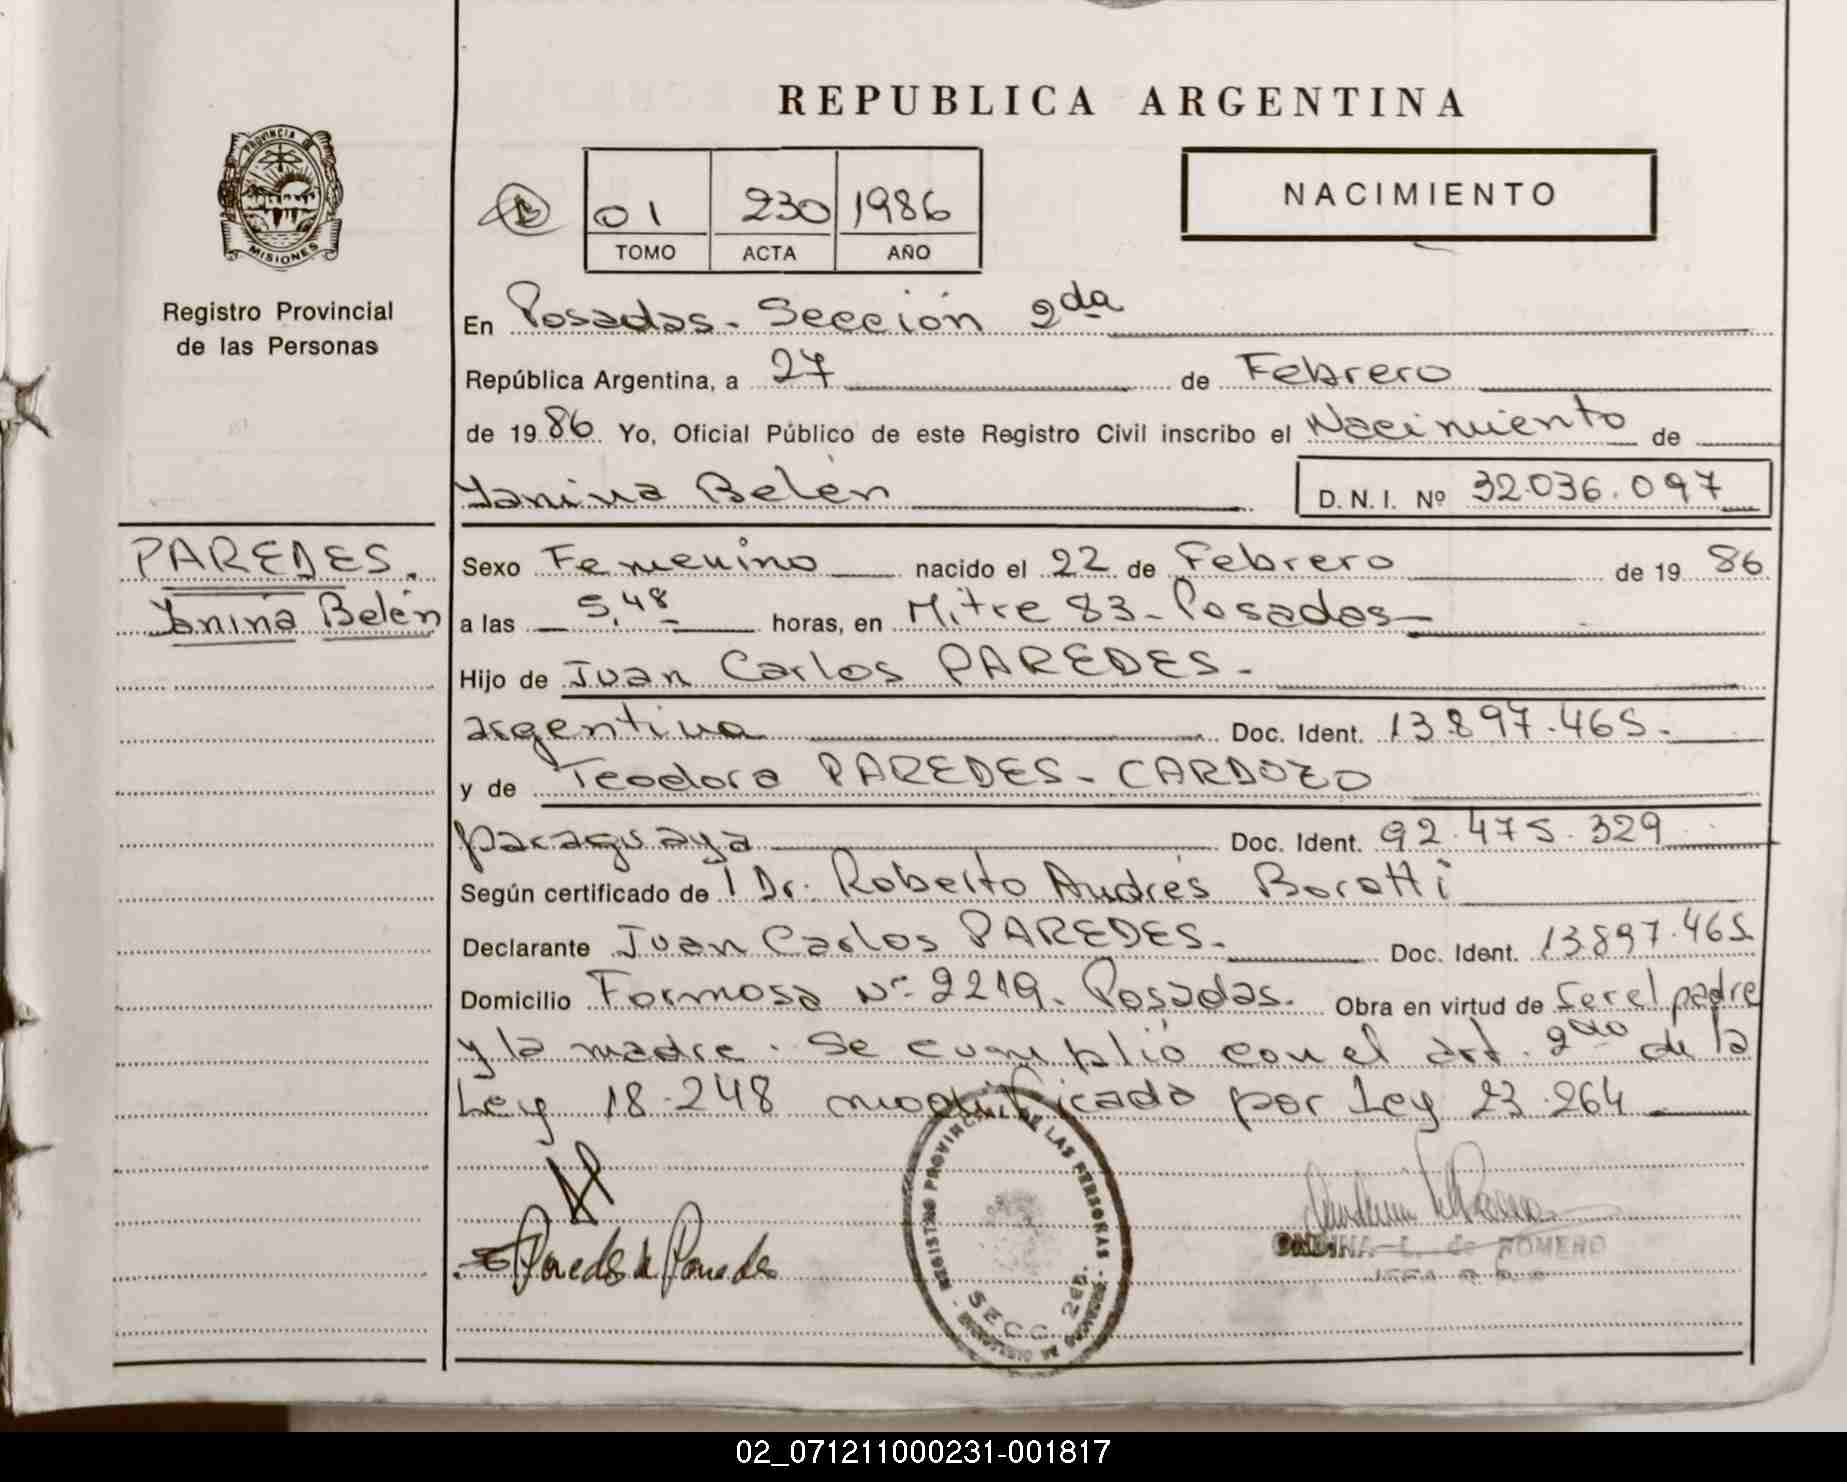 REPUBLICA ARGENTINA
PROVINCIA DE
MISIONES
01 230 1986
TOMO ACTA AÑO
NACIMIENTO
Registro Provincial
de las Personas
En Posadas. Sección 2da
República Argentina, a 27 de Febrero
de 1986 Yo, Oficial Público de este Registro Civil inscribo el Nacimiento de
Yanina Belén D.N.I. Nº 32.036.097
PAREDES.
Yanina Belén
Sexo Femenino nacido el 22 de Febrero de 19 86
a las 5,48 horas, en Mitre 83 - Posadas
Hijo de Juan Carlos PAREDES -
argentina Doc. Ident. 13.897.465.
y de Teodora PAREDES - CARDOZO
paraguaya Doc. Ident. 92.475.329
Según certificado de Dr. Roberto Andrés Borotti
Declarante Juan Carlos PAREDES. Doc. Ident. 13.897.465
Domicilio Formosa Nº 2219. Posadas. Obra en virtud de ser el padre
y la madre. Se cumplió con el art. 2do de la
Ley 18.248 modificada por Ley 23.264
Paredes de Paredes
REGISTRO PROVINCIAL DE LAS PERSONAS
SECC 2da.
ONDINA L. de ROMERO
02_071211000231-001817